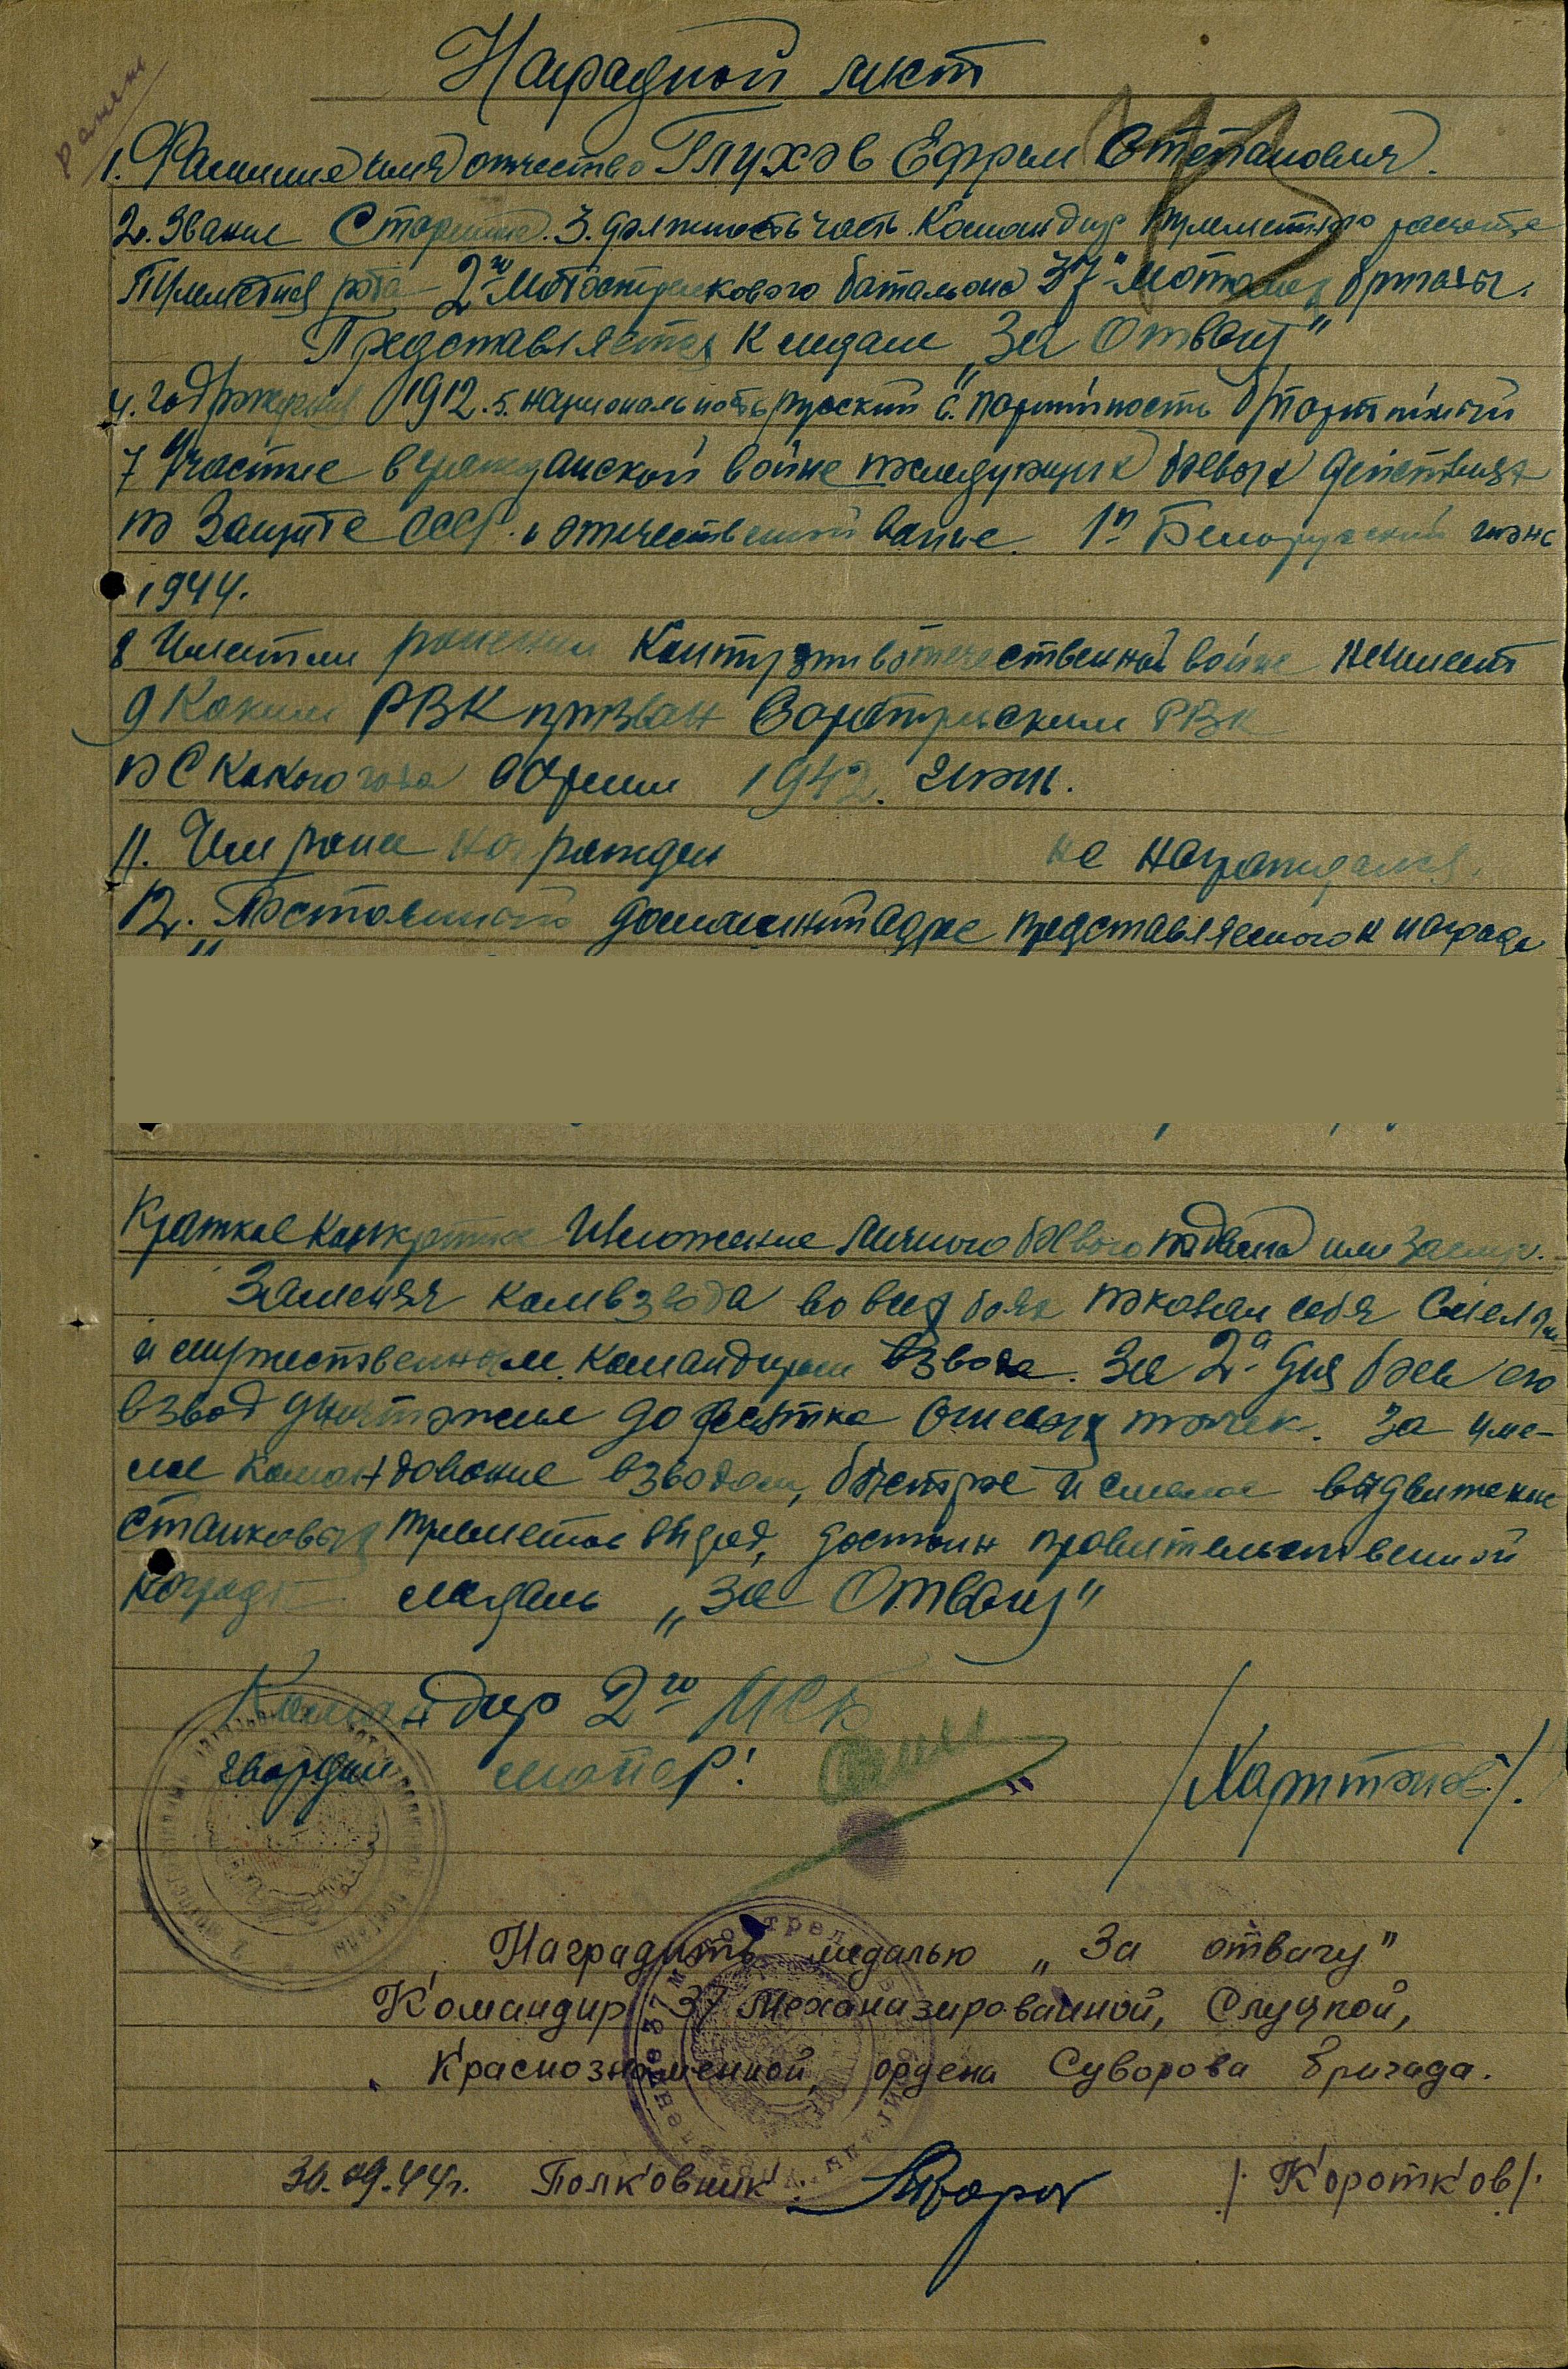 ранен
Наградной лист
1. Фамилия имя отчество Глухов Ефрем Степанович.
2. Звание Старшина. 3. должность часть Командир пулеметного расчета
Пулеметная рота 2го Мотострелкового батальона 37й мотомех бригады.
Представляется к медали „За Отвагу"
4. год рождения 1912. 5. национальность русский 6. партийность б/партийный
7 Участие в гражданской войне последующих боевых действиях
по Защите СССР и отечественной воине. 1й Белорусский июнь
1944.
8 Имеет ли ранения Контузии в отечественной войне не имеет
9 Каким РВК призван РВК
10 С какого года в Армии 1942. июнь.
11. Чем ранее награжден не награждался.
12. Постоянный домашний адрес представляемого к награде
Краткое Конкретное Изложение личного боевого подвига или заслуг.
Заменяя комвзвода во всех боях показал себя Смелым
и мужественным командиром взвода. За 2а дня боев его
взвод уничтожил до десятка Огневых точек. За уме-
лое командование взводом, быстрое и смелое выдвижение
станковых пулеметов вперед, достоин правительственной
награды медаль „За Отвагу"
Командир 2го МСБ
гвардии майор: /Харитонов/.
Наградить медалью „За отвагу"
Командир 37 Механизированной, Слуцкой,
Краснознаменной, ордена Суворова бригада.
30.09.44г. Полковник: /Коротков/.